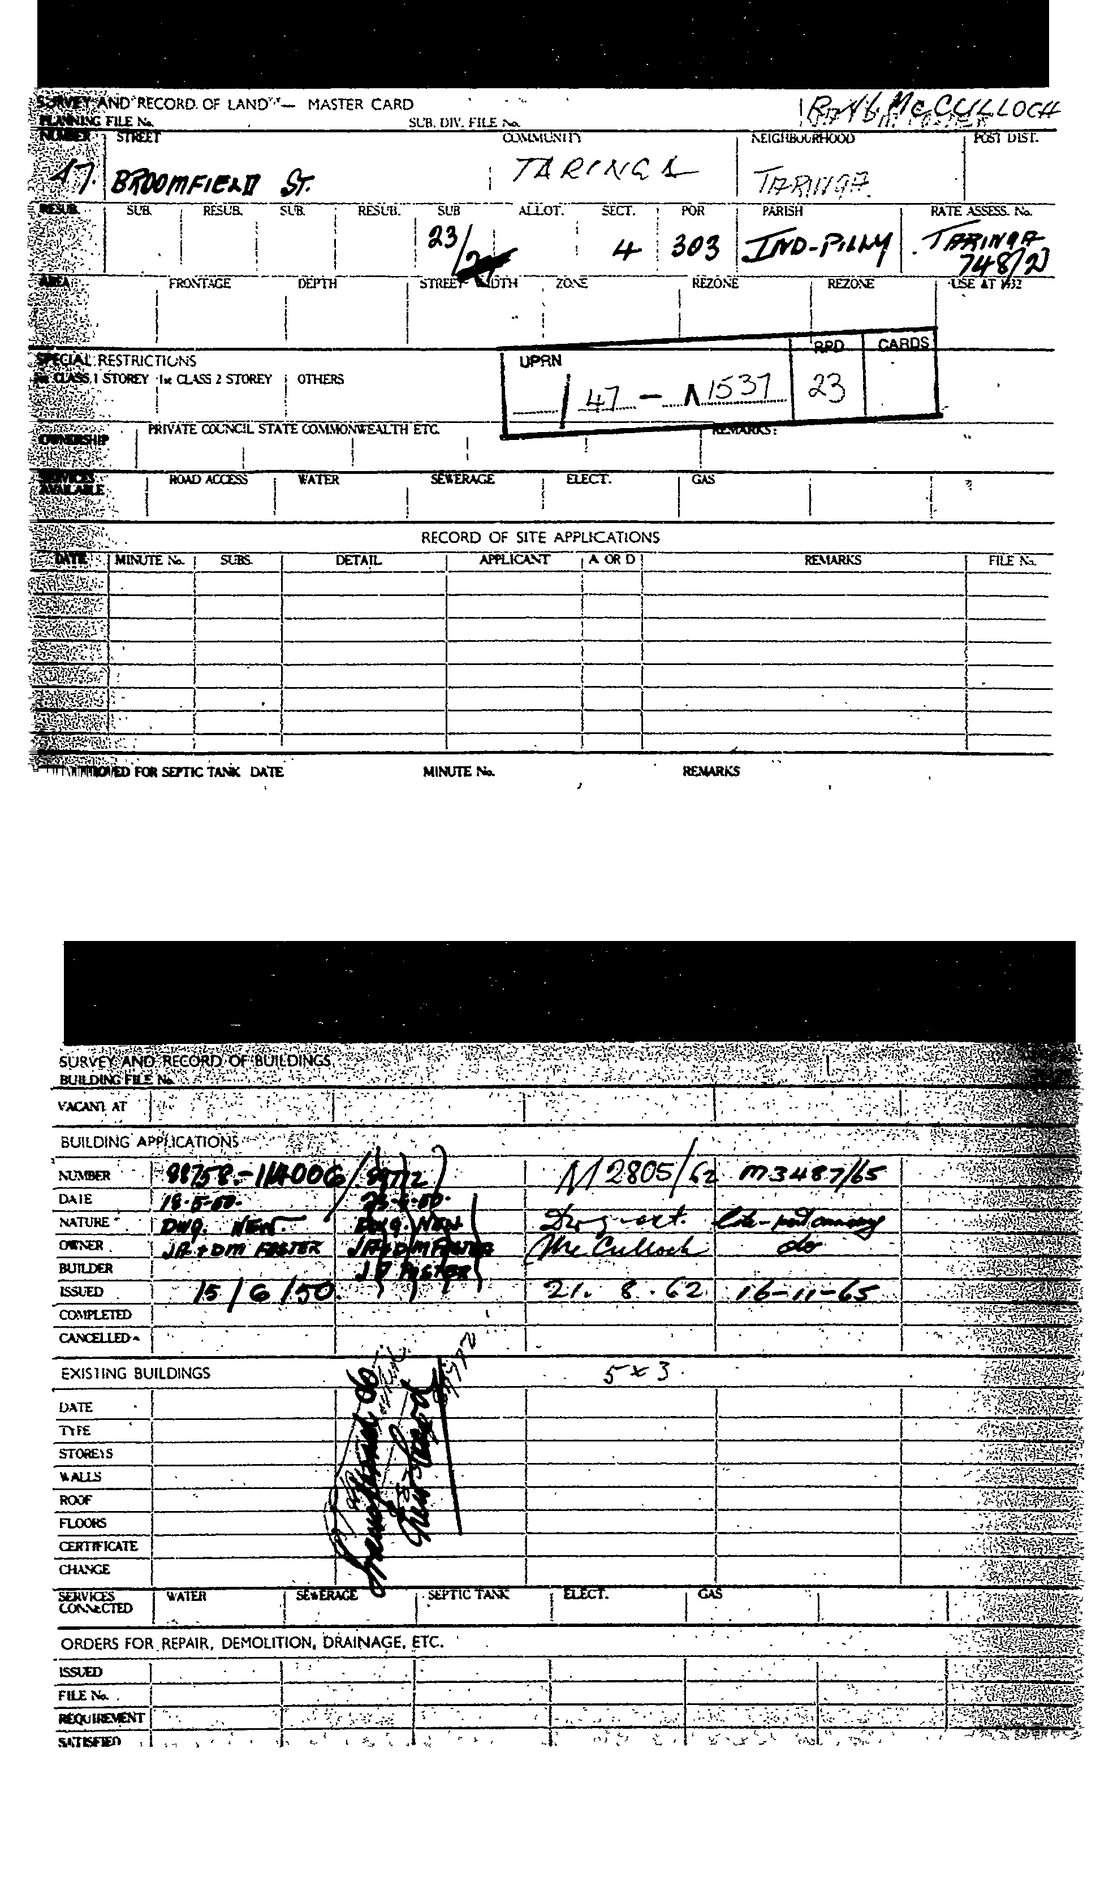 SURVEY AND RECORD OF LAND — MASTER CARD
McCULLOCH
PLANNING FILE No. SUB. DIV. FILE No.
NUMBER STREET COMMUNITY NEIGHBOURHOOD POST DIST.
47. BROOMFIELD ST. TARINGA TARINGA
RESUB. SUB. RESUB. SUB. RESUB. SUB ALLOT. SECT. POR PARISH RATE ASSESS. No.
23/ 4 303 IND-PILLY TARINGA
748/2
AREA FRONTAGE DEPTH STREET WIDTH ZONE REZONE REZONE USE AT 1932
SPECIAL RESTRICTIONS
CLASS 1 STOREY 1st CLASS 2 STOREY OTHERS
UPRN RPD CARDS
/ 47 — 1537 23
OWNERSHIP PRIVATE COUNCIL STATE COMMONWEALTH ETC. REMARKS:
SERVICES AVAILABLE ROAD ACCESS WATER SEWERAGE ELECT. GAS
RECORD OF SITE APPLICATIONS
DATE MINUTE No. SUBS. DETAIL APPLICANT A OR D REMARKS FILE No.
APPROVED FOR SEPTIC TANK DATE MINUTE No. REMARKS
SURVEY AND RECORD OF BUILDINGS
BUILDING FILE No.
VACANT AT
BUILDING APPLICATIONS
NUMBER M2805/62 M3487/65
DATE 18-5-50.
NATURE DWG. NEW. DWG. NEW
OWNER JA + DM FOSTER JA + DM FOSTER McCulloch do
BUILDER FOSTER
ISSUED 15/6/50. 21. 8. 62 16-11-65
COMPLETED
CANCELLED
EXISTING BUILDINGS 5 x 3
DATE
TYPE
STOREYS
WALLS
ROOF
FLOORS
CERTIFICATE
CHANGE
SERVICES CONNECTED WATER SEWERAGE SEPTIC TANK ELECT. GAS
ORDERS FOR REPAIR, DEMOLITION, DRAINAGE, ETC.
ISSUED
FILE No.
REQUIREMENT
SATISFIED